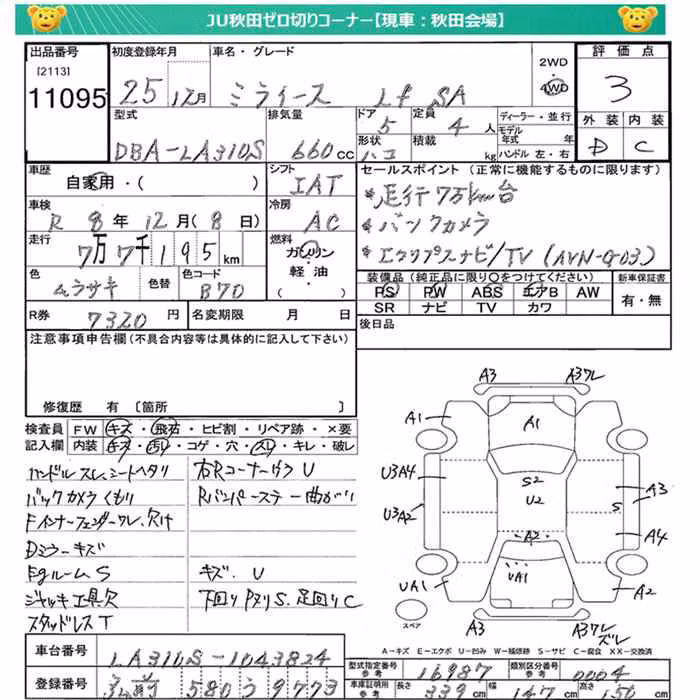 JU秋田ゼロ切りコーナー【現車：秋田会場】
出品番号 初度登録年月 車名・グレード 2WD 評価点
[2113] 4WD
11095 25 12月 ミライース Lf SA 3
型式 排気量 ドア 定員 ディーラー・並行 外装 内装
5 4人 モデル年式 年
DBA-LA310S 660cc 形状 積載 kg ハンドル 左・右 D C
ハコ
車歴 シフト セールスポイント（正常に機能するものに限ります）
自家用・（ ） IAT *走行7万km台
車検 冷房 *バックカメラ
R 8年 12月（8日） AC *エクリプスナビ/TV (AVN-G03)
走行 燃料
7万7千195km ガソリン
軽油
（ ）
装備品（純正品に限り○をつけてください） 新車保証書
色 色替 色コード PS PW ABS エアB AW 有・無
ムラサキ B70 SR ナビ TV カワ
R券 7320円 名変期限 月 日 後日品
注意事項申告欄（不具合内容等は具体的に記入して下さい）
修復歴 有〔箇所 〕
検査員 FW キズ・飛石・ヒビ割・リペア跡・×要
記入欄 内装 キズ・汚れ・コゲ・穴・スレ・キレ・破レ
ハンドルスレ、シートヘタリ
バックカメラくもり
Fインナーフェンダーワレ、欠け
Dミラーキズ
EgルームS
ジャッキ工具欠
スタッドレスT
右Rコーナーゆう U
Rバンパーステー曲がり
キズ、U
下回りPヌリS、足回りC
A3 A3ワレ
A1 A1
U3A4 S2 A3
U2 S
U3A2 A2 A4
UA1 UA1 A2
スペア A3 A3ワレ
ズレ
A-キズ E-エクボ U-凹み W-補修跡 S-サビ C-腐食 XX-交換済
車台番号 LA310S-1043824
型式指定番号 参考 16987 類別区分番号 参考 0004
登録番号 580 う 9773
車庫証明用 参考 長さ 339cm 幅 147cm 高さ 150cm